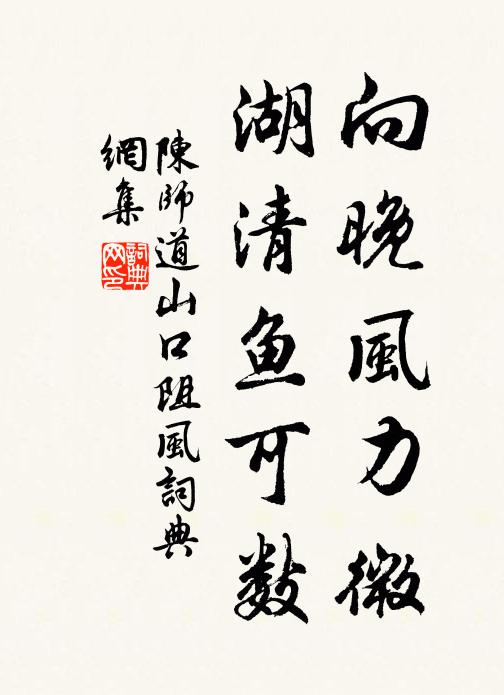 向晚風力微
湖清鱼可數
陳師道山口阻風詞典
網集
詞典
网印